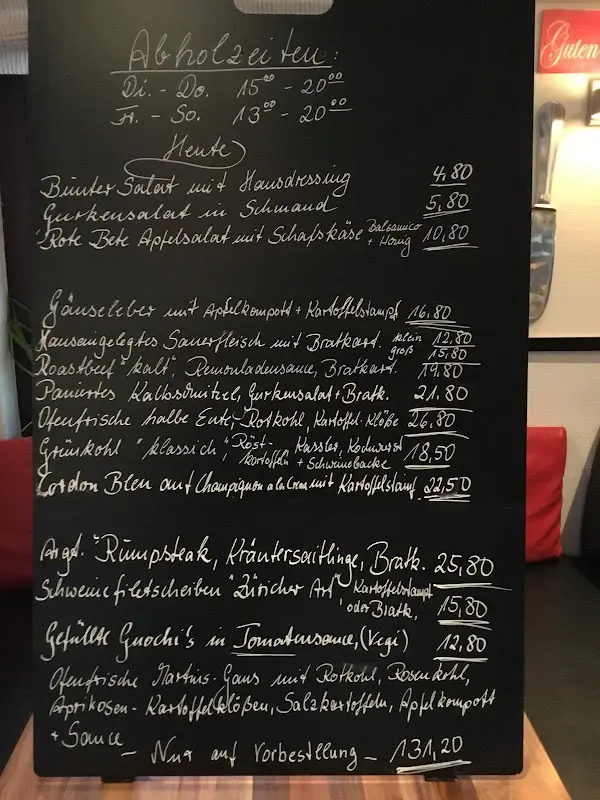 Abholzeiten:
Di. - Do. 15⁰⁰ - 20⁰⁰
Fr. - So. 13⁰⁰ - 20⁰⁰
Heute
Bunter Salat mit Hausdressing 4,80
Gurkensalat in Schmand 5,80
Rote Bete Apfelsalat mit Schafskäse Balsamico + Honig 10,80
Gänseleber mit Apfelkompott + Kartoffelstampf 16,80
Hauseingelegtes Sauerfleisch mit Bratkart. klein 12,80
groß 15,80
Roastbeef "kalt", Remouladensauce, Bratkart. 19,80
Paniertes Kalbsschnitzel, Gurkensalat + Bratk. 21,80
Ofenfrische halbe Ente, Rotkohl, Kartoffel-Klöße 26,80
Grünkohl "klassich", Röst-kartoffeln, Kassler, Kochwurst + Schweinebacke 18,50
Cordon Bleu auf Champignon a la Creme mit Kartoffelstampf. 22,50
Angt. "Rumpsteak, Kräutersaitlinge, Bratk. 25,80
Schweinefiletscheiben "Züricher Art" Kartoffelstampf
oder Bratk, 15,80
Gefüllte Gnochi's in Tomatensauce, (Vegi) 12,80
Ofenfrische Martins-Gans mit Rotkohl, Rosenkohl,
Aprikosen-Kartoffelklößen, Salzkartoffeln, Apfelkompott
+ Sauce
- Nur auf Vorbestllung - 131,20
Guten